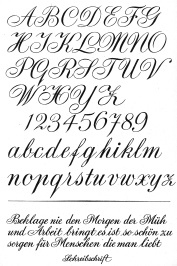 ABCDEFG
HIJKLMNO
PQRSTUV
WXYZ
123456789
abcdefghijklm
nopqrstuvwxyz
Beklage nie den Morgen der Müh
und Arbeit bringt es ist so schön zu
sorgen für Menschen die man liebt
Schreibschrift